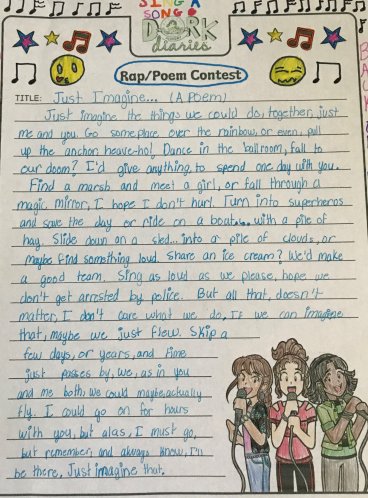 SING A
SONG
DORK
diaries
Rap/Poem Contest
TITLE: Just Imagine... (A Poem)
Just imagine the things we could do, together, just
me and you. Go someplace over the rainbow, or even, pull
up the anchor, heave-ho!, Dance in the ballroom, fall to
our doom? I'd give anything to spend one day with you.
Find a marsh and meet a girl, or fall through a
magic mirror, I hope I don't hurl. Turn into superheros
and save the day or ride on a boat... with a pile of
hay. Slide down on a sled... into a pile of clouds, or
maybe find something loud. Share an ice cream? We'd make
a good team. Sing as loud as we please, hope we
don't get arrested by police. But all that, doesn't
matter, I don't care what we do, If we can imagine
that, maybe we just flew. Skip a
few days, or years, and time
just passes by, we, as in you
and me both, we could maybe, actually
fly. I could go on for hours
with you, but alas, I must go,
but remember, and always know, I'll
be there, Just imagine that.